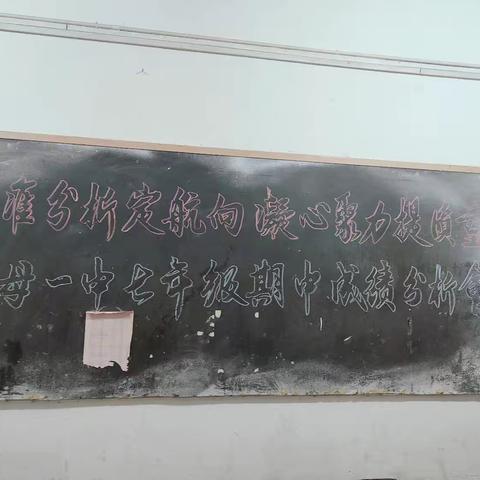 准分析定航向凝心聚力提质量
母一中七年级期中成绩分析会